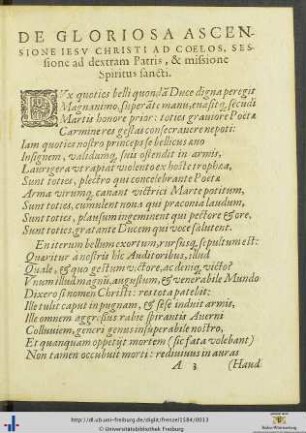 DE GLORIOSA ASCEN-
SIONE IESV CHRISTI AD COELOS, SES-
sione ad dextram Patris, & missione
Spiritus sancti.
DVx quoties belli quondã Duce digna peregit
Magnanimo, superãte manu, euasitq́; secũdi
Martis honore prior: toties grauiore Poëta
Carmine res gestas consecrauere nepoti:
Iam quoties nostro princeps se bellicus æuo
Insignem, validumq́; suis ostendit in armis,
Laurigera vt rapiat violento ex hoste trophæa,
Sunt toties, plectro qui concelebrante Poëtæ
Arma virumq́; canant victrici Marte potitum,
Sunt toties, cumulent noua qui præconia laudum,
Sunt toties, plausum ingeminent qui pectore & ore,
Sunt toties, gratante Ducem qui voce salutent.
En iterum bellum exortum, rursusq́; sepultum est:
Quæritur à nostris hîc Auditoribus, illud
Quale, & quo gestum victore, ac deniq́; victo?
Vnum illud magnũ, augustum, & venerabile Mundo
Dixero si nomen Christi: res tota patebit:
Ille tulit caput in pugnam, & sese induit armis,
Ille omnem aggressus rabie spirantis Auerni
Colluuiem, generi genus insuperabile nostro,
Et quanquam oppetijt mortem (sic fata volebant)
Non tamen occubuit morti: rediuiuus in auras
A 3 (Haud
http://dl.ub.uni-freiburg.de/diglit/frenzel1584/0013
© Universitätsbibliothek Freiburg